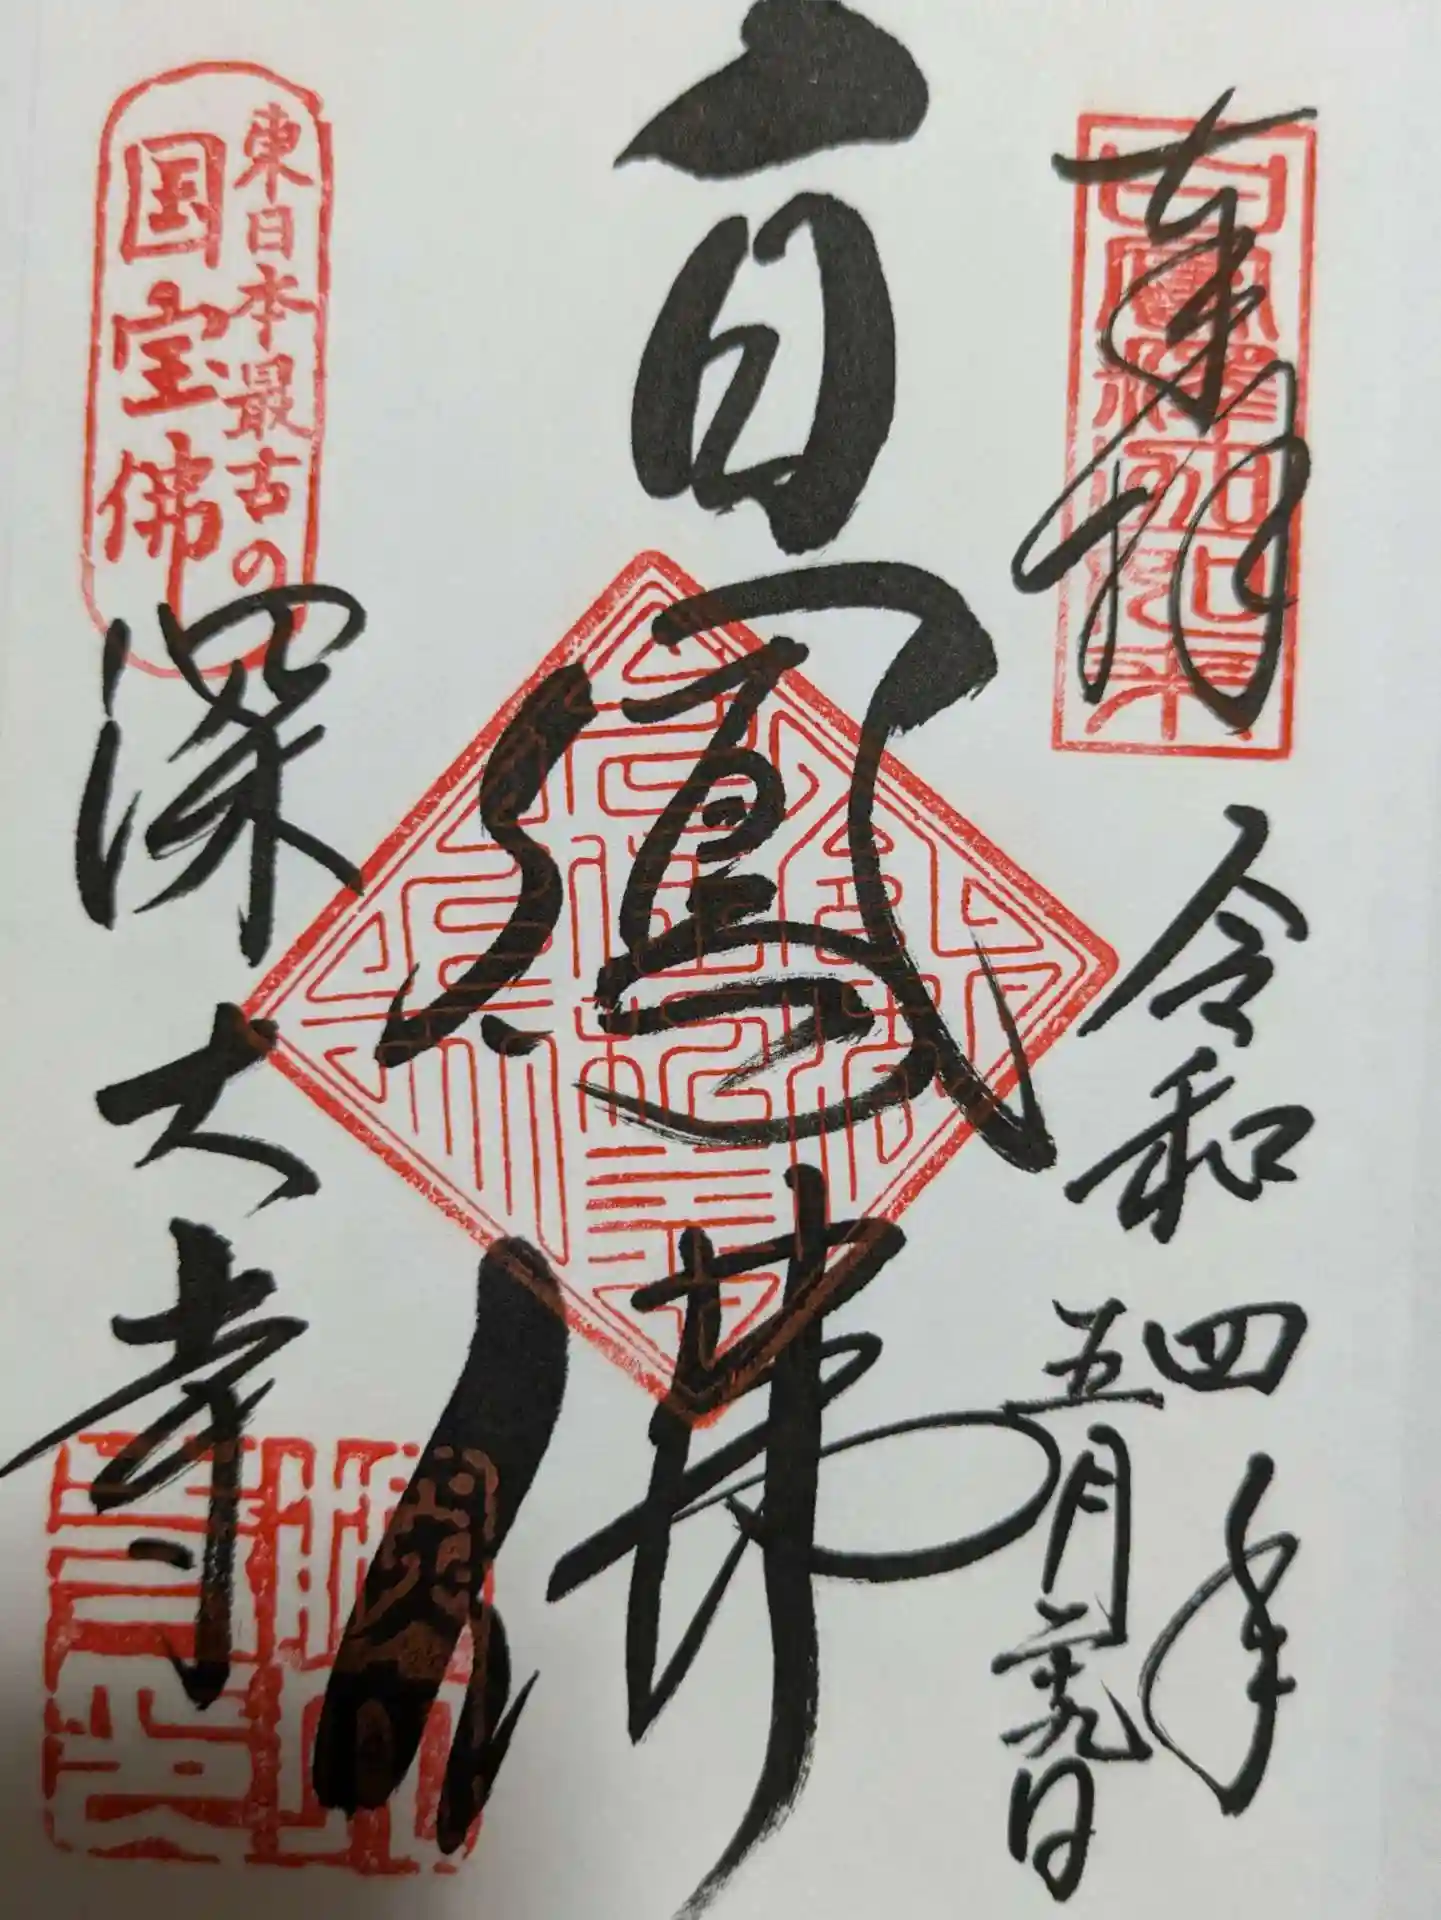 奉拝
令和四年
五月二十九日
白鳳佛
東日本最古の
国宝佛
深大寺